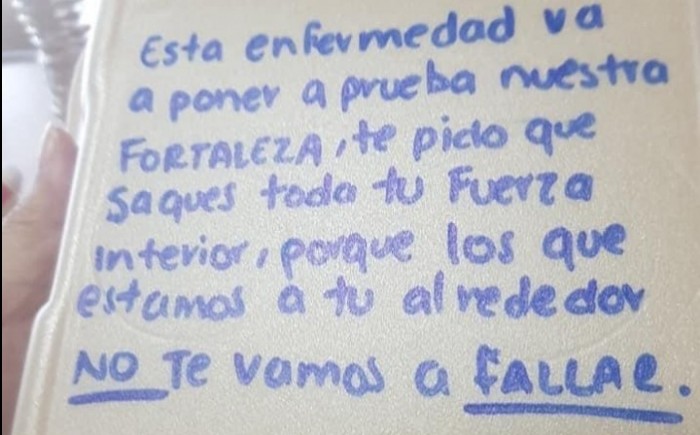 Esta enfermedad va
a poner a prueba nuestra
FORTALEZA, te pido que
saques toda tu Fuerza
interior, porque los que
estamos a tu alrededor
NO Te vamos a FALLAR.